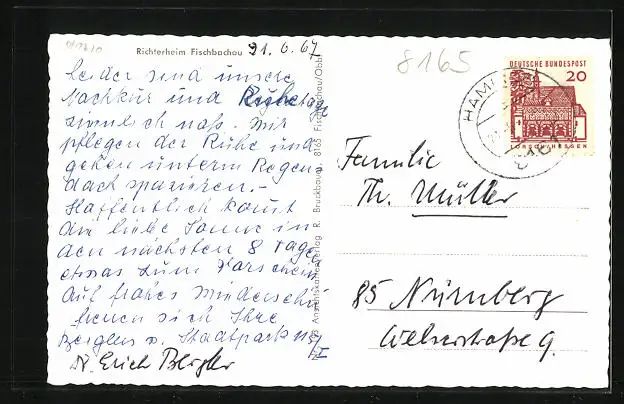 Richterheim Fischbachau 21.6.67
Leider sind unsere
Nachkur und Ruhetage
ziemlich naß. Wir
pflegen der Ruhe und
gehen unterm Regen-
dach spazieren. -
Hoffentlich kommt
die liebe Sonne in
den nächsten 8 Tagen
etwas zum Vorschein.
Auf frohes Wiedersehn
freuen sich Ihre
Berglers v. Stadtpark
Dr. Erich Bergler
Ansichtskartenverlag R. Bruckbauer, 8165 Fischbachau/Obb.
8165
DEUTSCHE BUNDESPOST
20
LORSCH/HESSEN
HAM
8161
Familie
Th. Müller
85 Nürnberg
Welserstraße 9.